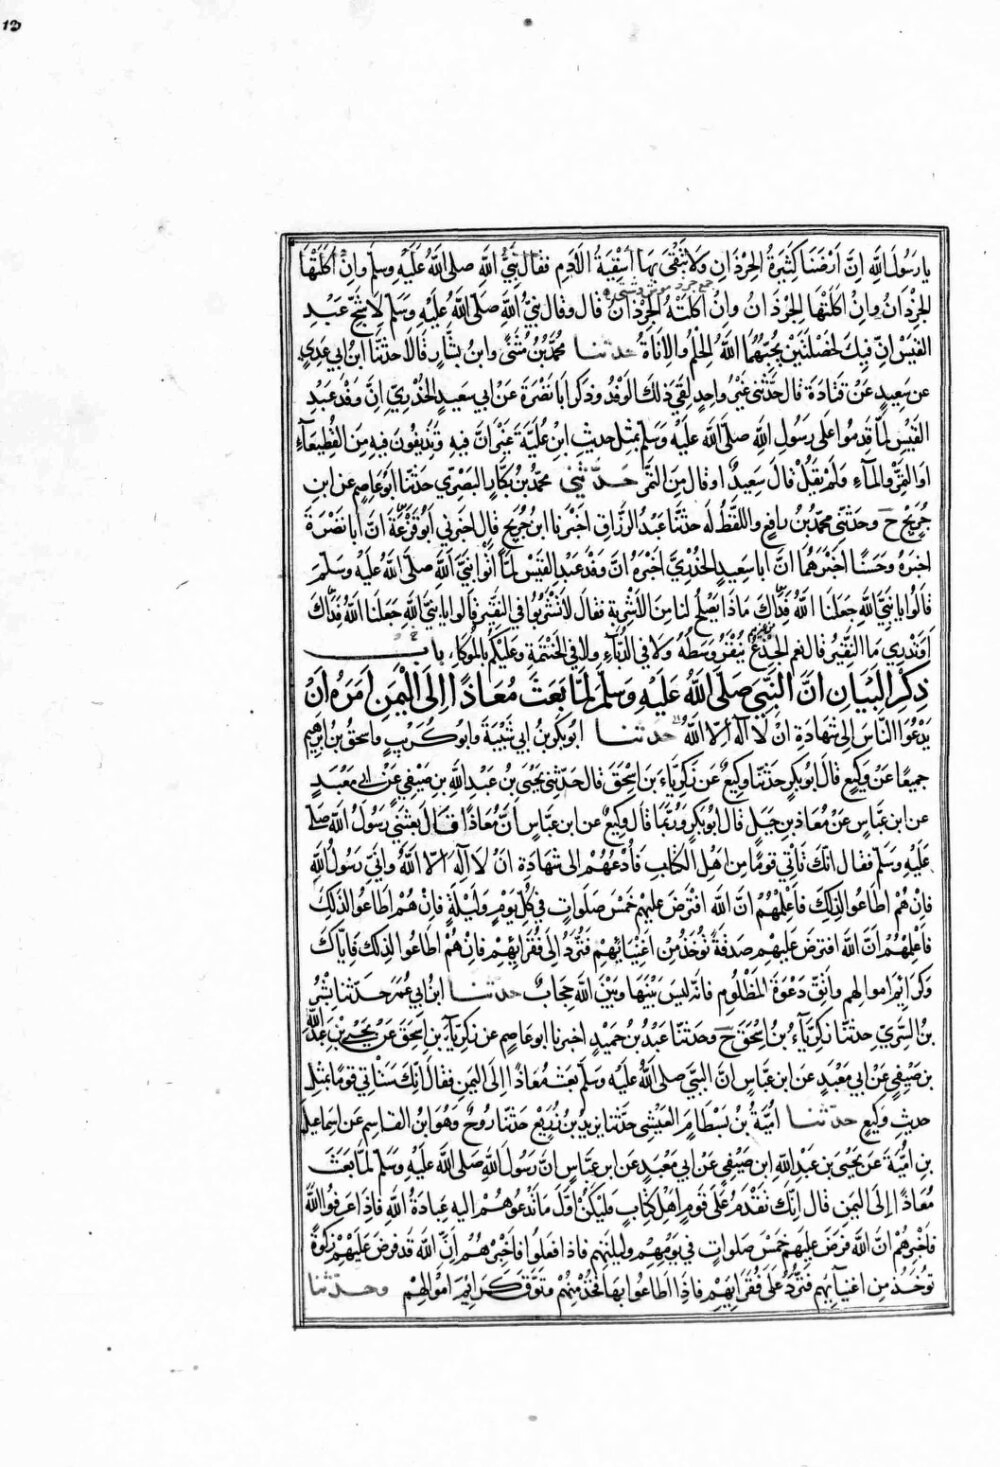 12
يا رَسُولَ اللهِ اِنَّ اَرْضَنَا كَثِيرَةُ الجِرْذَانِ وَلَا تَبْقَى بِهَا اَسْقِيَةُ الاَدَمِ فقال نَبِيُّ اللهِ صلى اللهُ عَلَيْهِ وسلم وَاِنْ اَكَلَتْهَا
الجِرْذَانُ وَاِنْ اَكَلَتْهَا الجُرْذَانُ وَاِنْ اَكَلَتْهُ الجِرْذَانُ قال وقال نبيُّ اللهِ صَلّى اللهُ عَلَيْهِ وسَلم لِاَشَجِّ عَبْدِ
القيْسِ اِنَّ فِيكَ لخَصْلَتَيْنِ يُحِبُّهُمَا اللهُ الحِلْمُ وَالاَنَاةُ حدثنا محمّدُ بْنُ مُثَنَّى وابنُ بشَّارٍ قَالَا حدّثنَا ابنُ ابي عَدِيٍّ
عن سَعِيدٍ عَنْ قتادَةَ قال حَدَّثَنِي غَيْرُ واحِدٍ لَقِيَ ذَلِكَ الوَفْدَ وذكَرَ اَبَا نَضْرَةَ عَنْ ابي سَعيدٍ الخُدْرِيِّ اِنَّ وَفْدَ عَبْدِ
القَيْسِ لمَّا قَدِمُوا عَلى رَسُولِ اللهِ صَلّى اللهُ عَلَيْهِ وَسَلم بمِثْلِ حديثِ ابْنِ عُلَيَّةَ غَيْرَ اَنَّ فيهِ وَتَذِيفُونَ فيهِ مِنَ القُطَيْعَاءِ
اَوِ التَّمْرِ وَالمَآءِ وَلَمْ يَقُلْ قالَ سَعِيدٌ اَو قال مِنَ التَّمْرِ حَدّثني محمّدُ بْنُ بَكَّارٍ البَصْرِيّ حَدّثَنَا اَبُو عَاصِمٍ عَن ابنِ
جُرَيْجٍ ح وحَدّثني محمّدُ بنُ رافِعٍ وَاللّفْظُ له حدّثنَا عَبْدُ الرَّزّاقِ اَخْبَرنا ابنُ جُرَيْجٍ قال اخبَرني اَبُو قَزَعَةَ اَنَّ اَبَا نَضْرَةَ
اخبَرَهُ وَحَسَنًا اَخْبَرَهُمَا اَنَّ اَبَا سَعِيدٍ الخُدْرِيَّ اَخْبَرَهُ اَنَّ وَفْدَ عَبْدِ القَيْسِ لمَّا اَتَوْا نَبِيَّ اللهِ صَلّى اللهُ عَلَيْهِ وَسَلّمَ
قالوا يا نَبِيَّ اللهِ جَعَلَنَا اللهُ فِدَاكَ مَاذَا يَصْلُحُ لنا مِنَ الاَشْرِبَةِ فقال لَا تَشْرَبُوا في النَّقِيرِ قالوا يا نبيَّ اللهِ جَعَلنَا اللهُ فِدَاكَ
اَوَتَدْرِي مَا النَّقِيرُ قال نعم الجِذْعُ يُنْقَرُ وسَطُهُ وَلا في الدُّبَّآءِ ولا في الحَنْتَمَةِ وعَلَيْكُم بِالمُوكَاءِ باب
ذِكْرِ البَيَانِ اَنَّ النَّبِيَّ صَلّى اللهُ عَلَيْهِ وَسَلّم لمَّا بَعَثَ مُعَاذًا اِلَى اليَمَنِ اَمَرَهُ اَنْ
يَدْعُوَا النَّاسَ اِلى شَهَادَةِ اَنْ لَا اِلَهَ اِلّا اللهُ حدثنا اَبُو بَكْرِ بنُ ابي شَيْبَةَ وابو كُرَيْبٍ واسحقُ بنُ ابرٰهيم
جميعًا عَنْ وَكِيعٍ قال ابُو بَكْرٍ حَدّثنا وكِيعٌ عَن زَكَرِيَّاءَ بنِ اِسْحَقَ قال حَدّثني يَحْيَى بنُ عَبْدِ اللهِ بنِ صَيْفِيّ عَنْ ابي مَعْبَدٍ
عن ابنِ عَبَّاسٍ عَنْ مُعَاذِ بنِ جَبَلٍ قال ابُو بَكْرٍ وَرُبَّمَا قال وكِيعٌ عن ابنِ عباسٍ اَنَّ مُعَاذًا قَالَ بعَثَنِي رَسُولُ اللهِ صلى
عَلَيْهِ وَسَلم فقال اِنّكَ تَأْتِي قومًا مِن اَهْلِ الكتَابِ فَادْعُهُمْ اِلى شَهَادَةِ اَنْ لَا اِلَهَ اِلّا اللهُ وَانِّي رَسُولُ اللهِ
فَاِنْ هُمْ اَطَاعُوا لِذَلِكَ فَاعْلِمْهُمْ اَنَّ اللهَ افْتَرَضَ عليهِمْ خَمْسَ صَلَواتٍ في كُلِّ يَوْمٍ وَلَيْلَةٍ فَاِنْ هُمْ اَطَاعُوا لِذَلِكَ
فَاَعْلِمْهُمْ اَنَّ اللهَ افترضَ عَلَيْهِمْ صَدَقَةً تُؤْخَذُ مِنْ اَغنِيَائِهِمْ فَتُرَدُّ اِلى فُقَرَائِهِمْ فَاِنْ هُمْ اَطَاعُوا لِذَلِكَ فَاِيَّاكَ
وَكَرَائِمَ اَموَالِهِم وَاتَّقِ دَعْوَةَ المَظْلُومِ فانّه لَيسَ بَيْنَهَا وَبَيْنَ اللهِ حِجَابٌ حدثنا ابنُ ابي عُمَرَ حدّثنَا بِشْرُ
بنُ السَّرِيِّ حدثنَا زَكَرِيَّآءُ بنُ اِسْحَقَ ح وحدثنَا عَبْدُ بنُ حُمَيْدٍ اخبرنا ابو عاصِمٍ عن زَكَرِيَّآءَ بنِ اِسْحَقَ عَنْ يَحْيَى بْنِ عَبْدِ اللهِ
بنِ صَيْفِيّ عَنْ ابي مَعْبَدٍ عَن ابنِ عَبّاسٍ اَنَّ النّبيَّ صَلى اللهُ عَلَيْهِ وَسَلّم بَعَثَ مُعَاذًا اِلَى اليَمَنِ فقال اِنّكَ سَتَأْتِي قَومًا بمِثْلِ
حديثِ وَكِيعٍ حدثنا اُمَيَّةُ بنُ بِسْطَامِ العَيْشِيُّ حَدّثنا يَزِيدُ بنُ زُرَيْعٍ حَدّثنا رَوْحٌ وَهُوَ ابنُ القاسِمِ عَن اِسمَاعيلَ
بنِ اُمَيّةَ عَن يَحْيَى بنِ عَبْدِ اللهِ ابنِ صَيْفِيّ عَن ابي مَعْبَدٍ عَن ابنِ عَبّاسٍ اَنَّ رَسُولَ اللهِ صَلى اللهُ عَلَيْهِ وَسَلم لمَّا بَعَثَ
مُعَاذًا اِلَى اليَمَنِ قَالَ اِنّكَ تَقْدَمُ عَلَى قَومٍ اَهْلِ كِتَابٍ فَلْيَكُنْ اَوَّلَ مَا تَدْعُوهُمْ اِليهِ عِبَادَةُ اللهِ فَاِذَا عَرَفُوا اللهَ
فَاَخْبِرْهُمْ اَنَّ اللهَ فَرَضَ عَليْهِم خَمْسَ صَلَواتٍ في يَومِهِمْ وَلَيْلَتِهِمْ فَاذا فعَلُوا فَاَخْبِرْهُمْ اَنَّ اللهَ قَد فَرَضَ عَلَيْهِمْ زَكوةً
تُوخَذُ مِن اغنِيَآئِهِمْ فَتُرَدُّ عَلَى فُقَرَائِهِمْ فَاِذَا اَطَاعُوا بِهَا فَخُذْ مِنْهُمْ وَتَوَقَّ كَرَائِمَ اَمْوَالِهِمْ وحدثنا